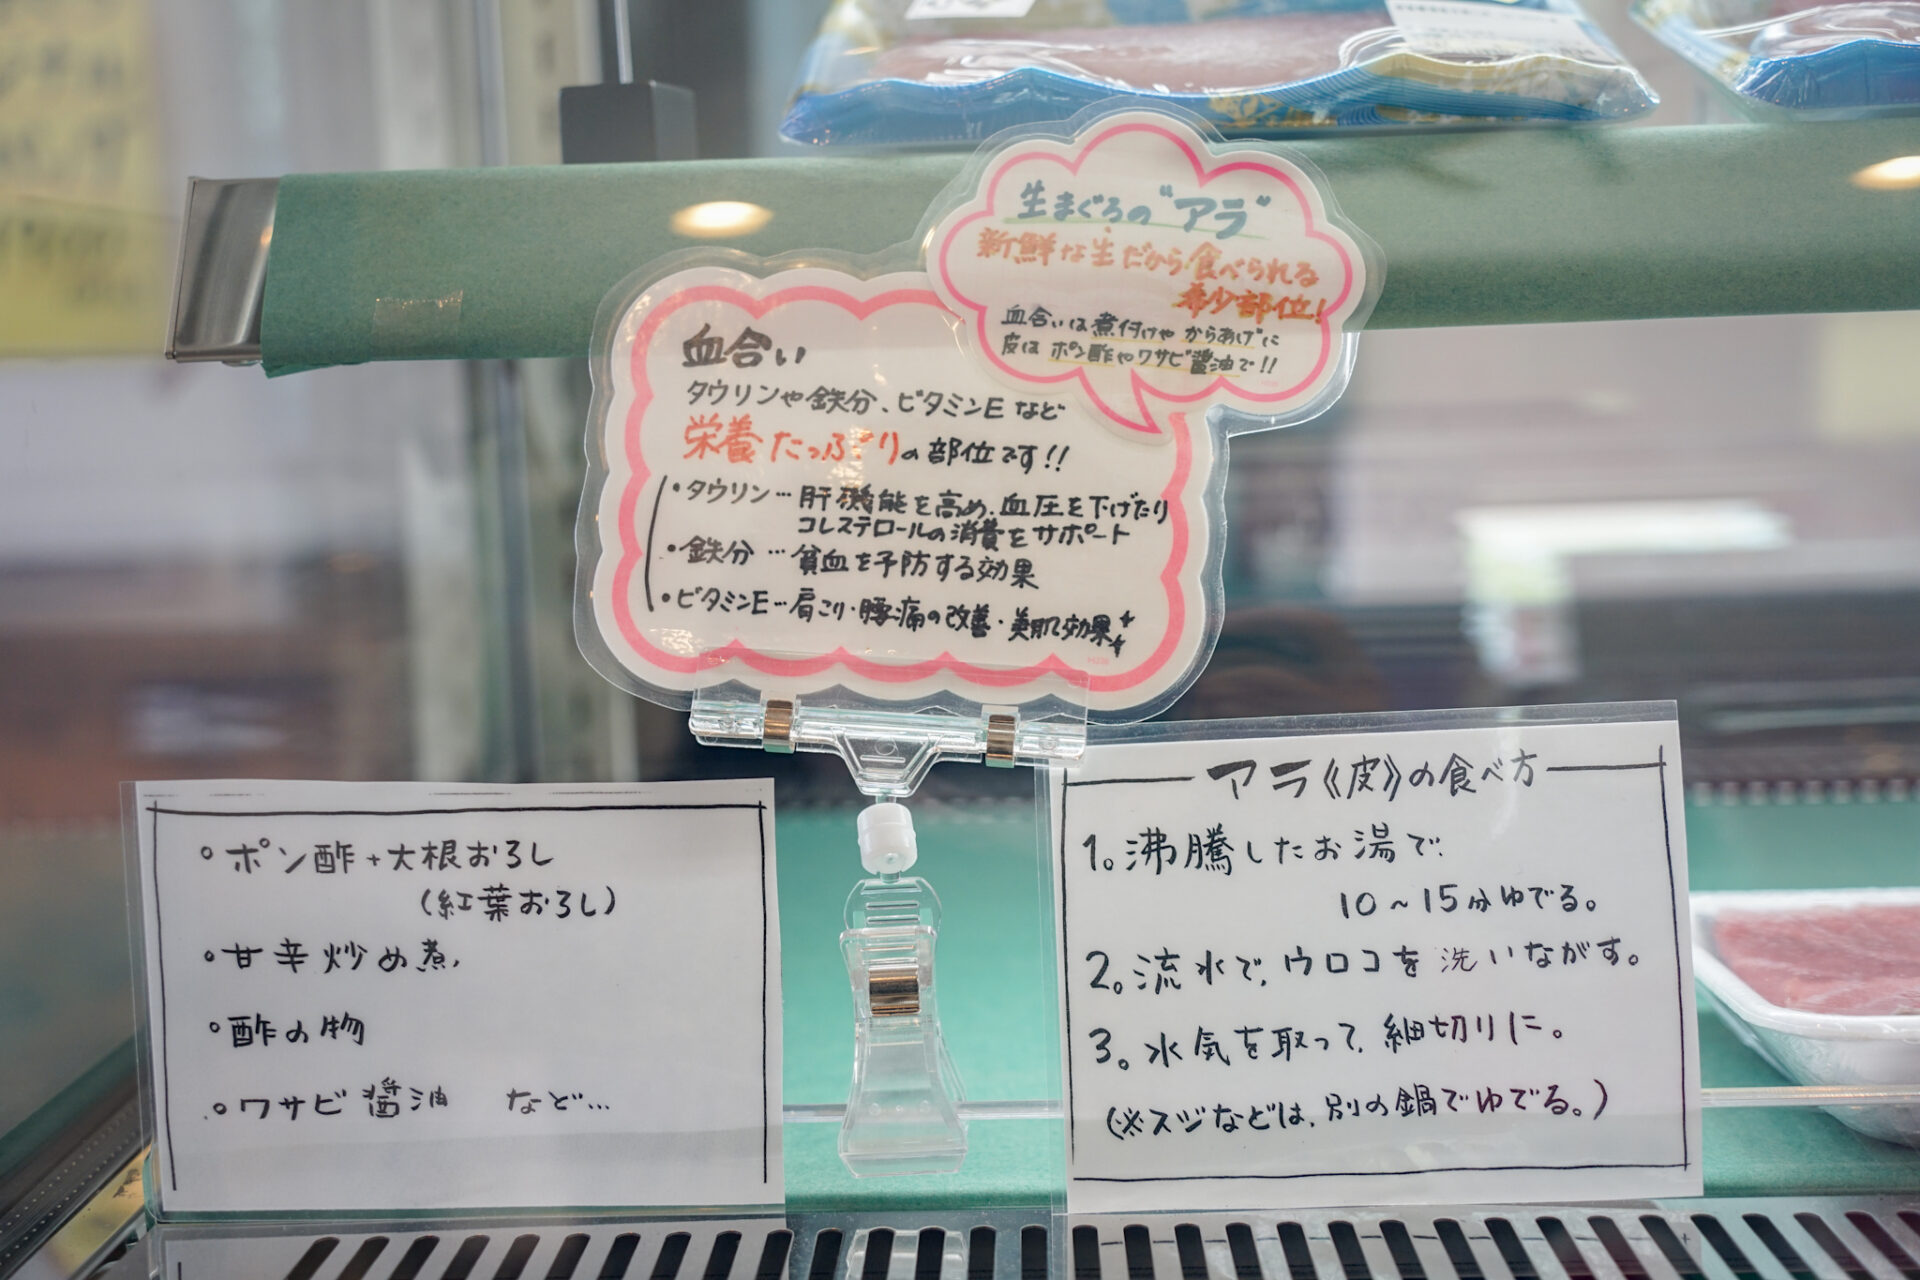 生まぐろの"アラ"
新鮮な生だから食べられる
希少部位!
血合いは煮付けや からあげに
皮は ポン酢やワサビ醤油で!!
血合い
タウリンや鉄分、ビタミンE など
栄養たっぷりの部位です!!
・タウリン…肝機能を高め、血圧を下げたり
コレステロールの消費をサポート
・鉄分 …貧血を予防する効果
・ビタミンE…肩こり・腰痛の改善・美肌効果
。ポン酢+大根おろし
(紅葉おろし)
。甘辛炒め煮
。酢の物
。ワサビ醤油 など…
アラ《皮》の食べ方
1。沸騰したお湯で、
10~15分ゆでる。
2。流水で、ウロコを洗いながす。
3。水気を取って、細切りに。
(※スジなどは、別の鍋でゆでる。)